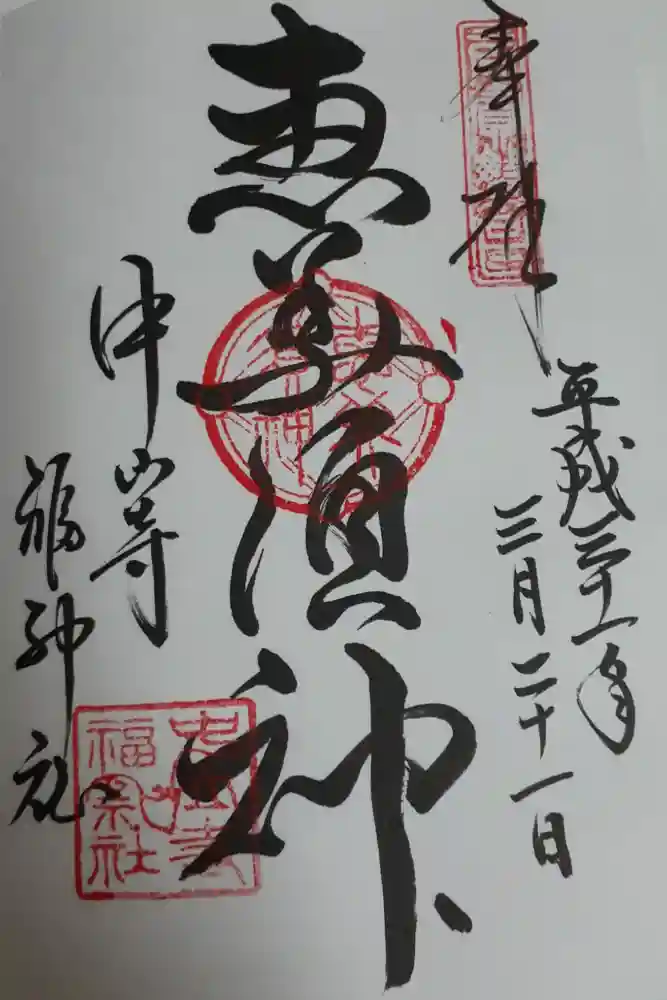 奉拝
平成三十一年
三月二十一日
恵美須神
中山寺
福神社
中山寺
福神社